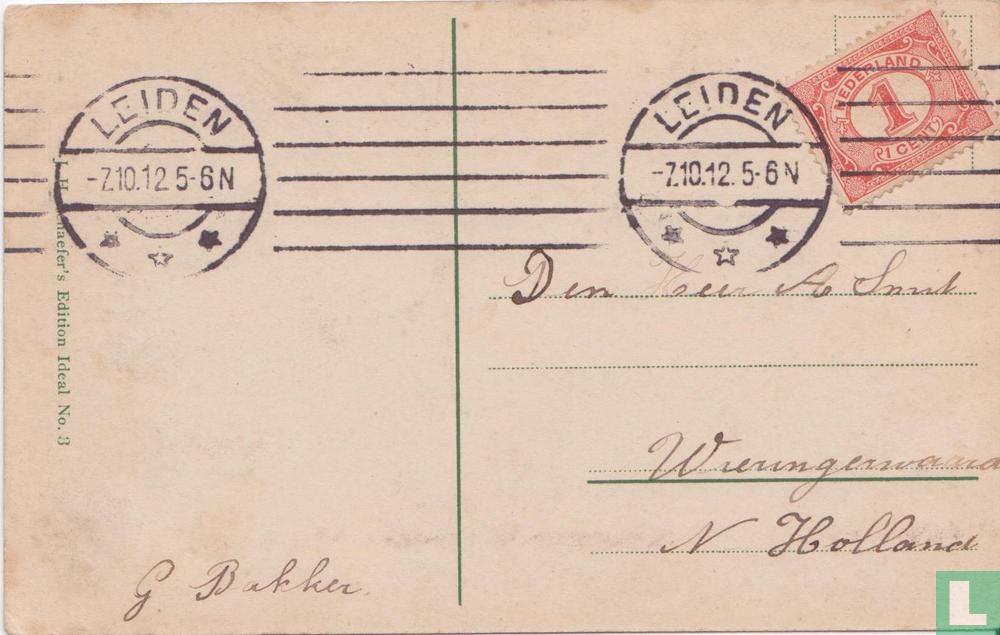 LEIDEN
-7.10.12. 5-6 N
LEIDEN
-7.10.12. 5-6 N
NEDERLAND
1
1 CENT
Den Heer A Smit
Wieringerwaard
N Holland
G Bakker.
haefer's Edition Ideal No. 3
L